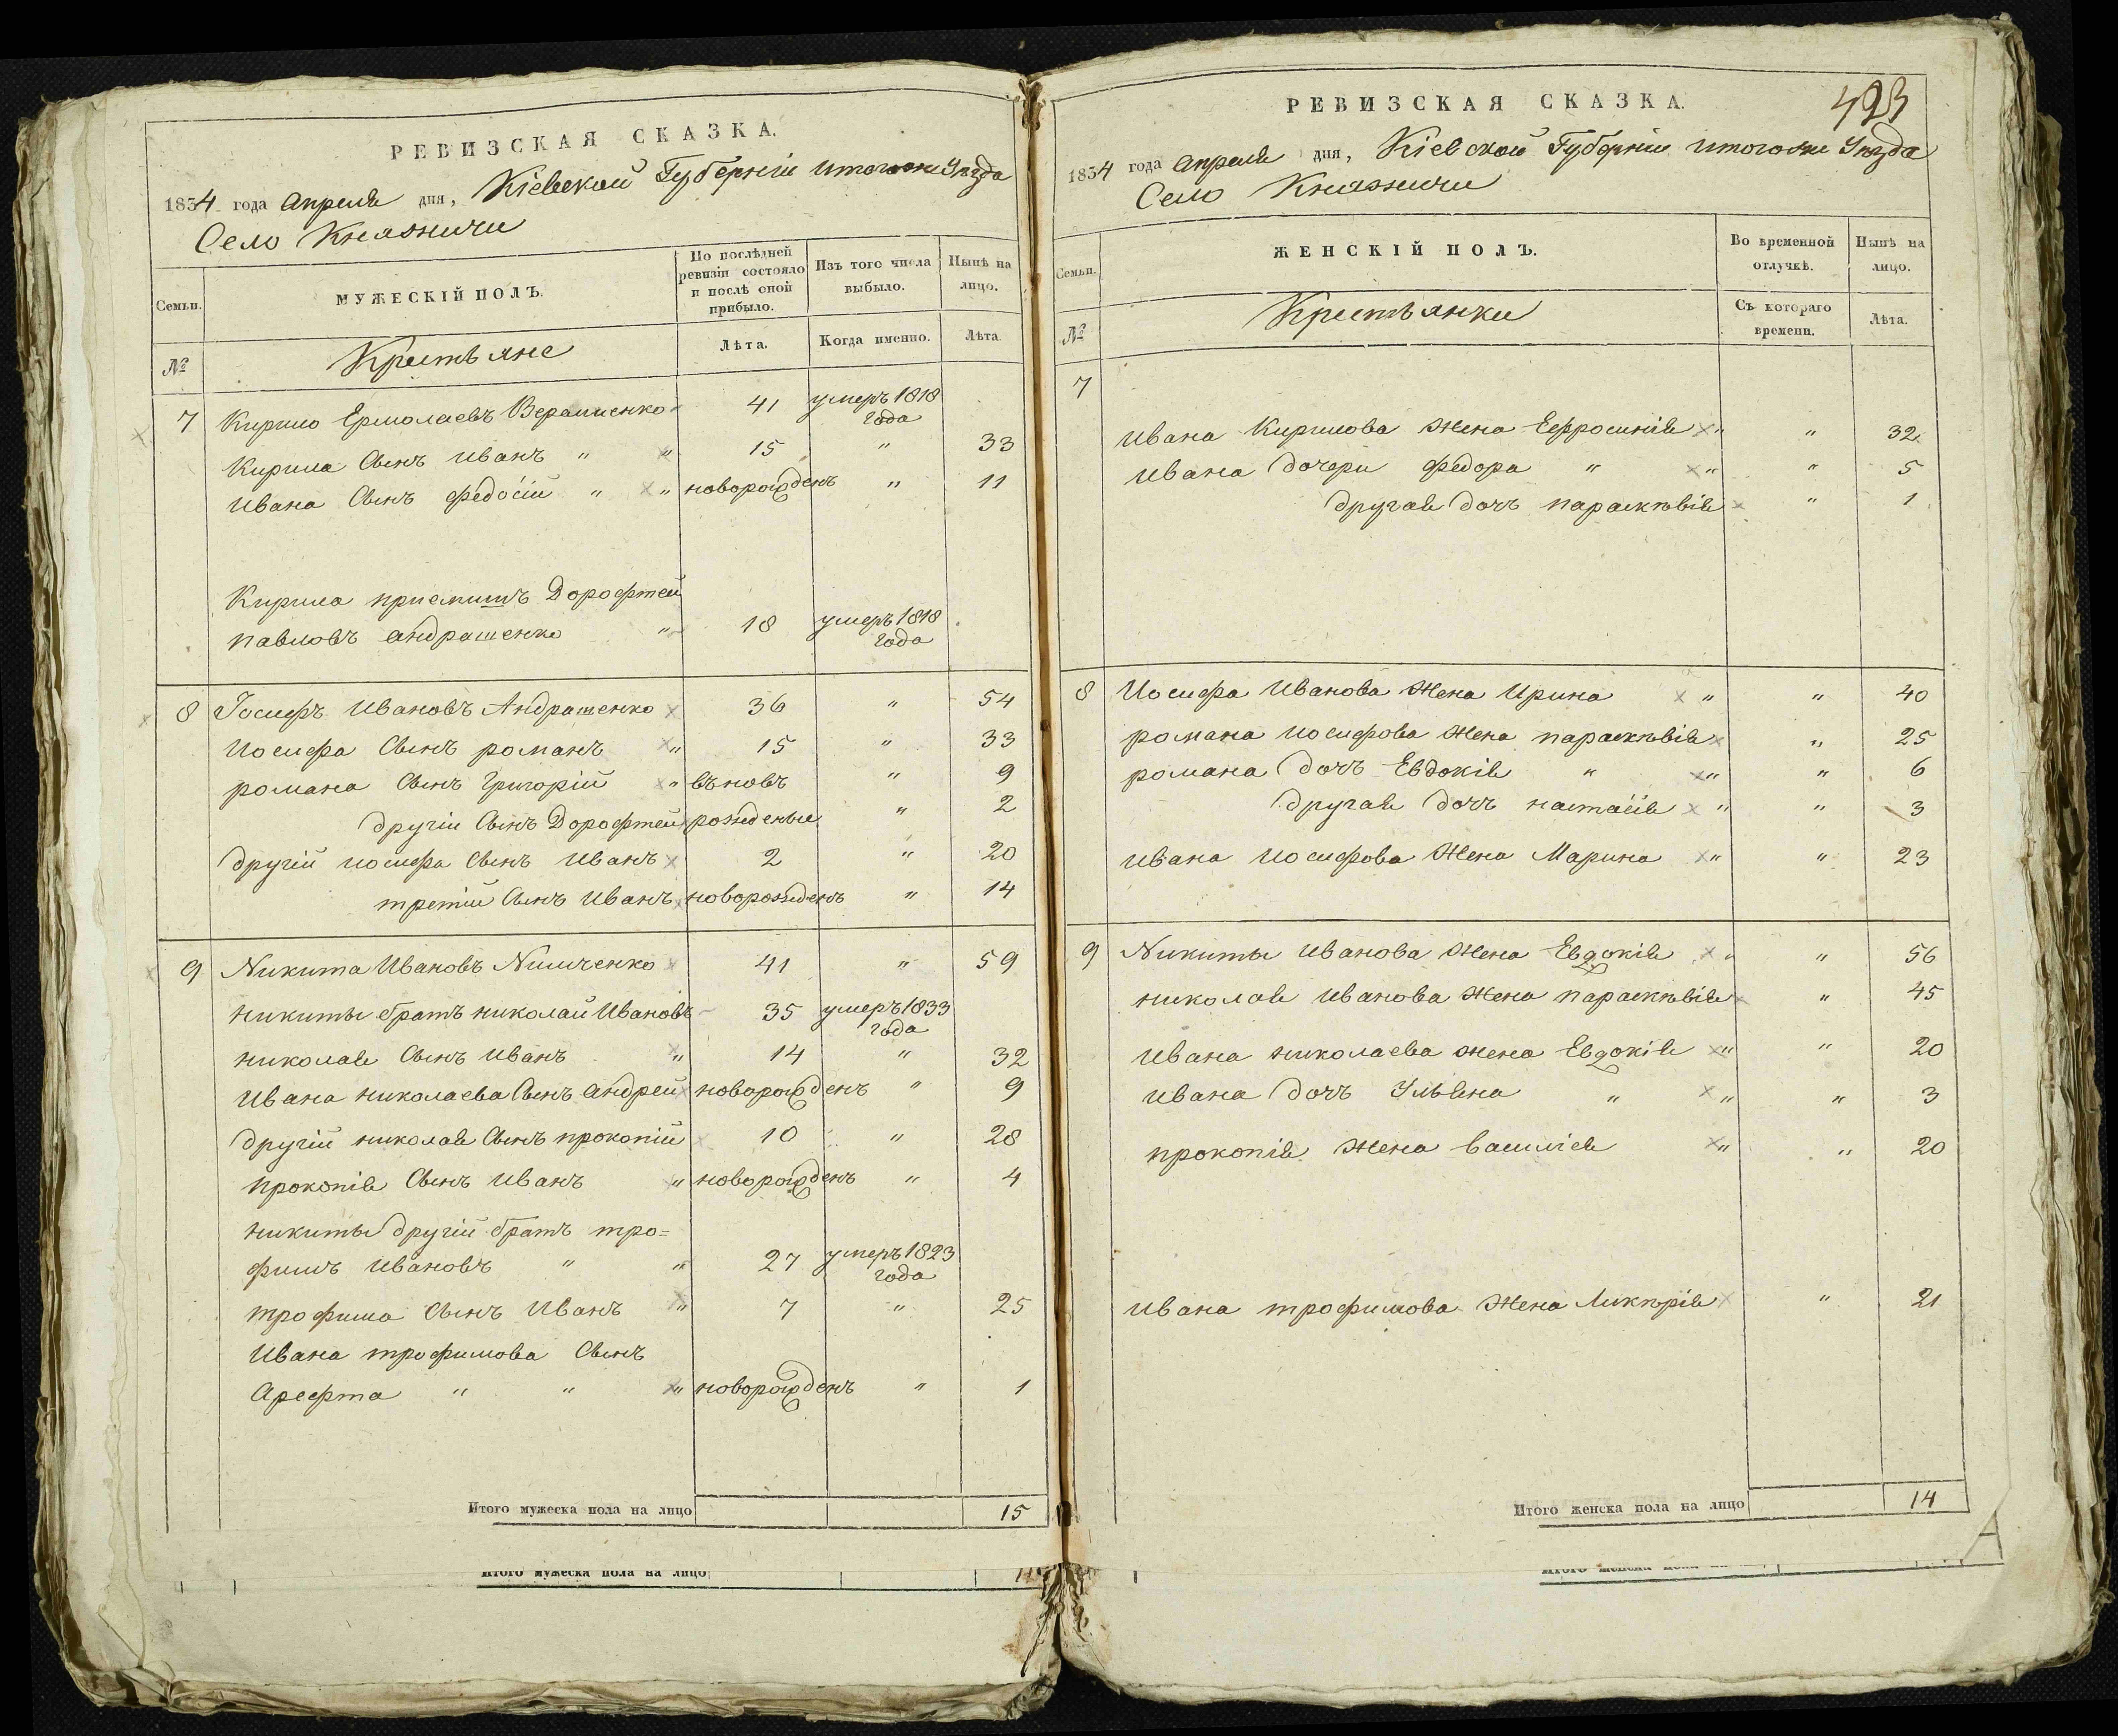 РЕВИЗСКАЯ СКАЗКА.
1834 года Апреля дня, Кіевской Губерніи итогоже Уѣзда
Село Княжичи
Семьи.
МУЖЕСКІЙ ПОЛЪ.
По послѣдней ревизіи состояло и послѣ оной прибыло.
Изъ того числа выбыло.
Нынѣ на лицо.
№
Крестьяне
Лѣта.
Когда именно.
Лѣта.
7 Кирило Ермолаевъ 41 умеръ 1818 года
Кирила Сынъ Иванъ " " 15 " 33
Ивана Сынъ Федосій " " новорожденъ " 11
Кирила приемишъ Дорофтей
павловъ андрашенко " 18 умеръ 1818 года
8 Іосифъ Ивановъ Андрашенко 36 " 54
Иосифа Сынъ романъ " 15 " 33
романа Сынъ Григорій " вновь " 9
другіи Сынъ Дорофтей рожденые " 2
другій иосифа Сынъ Иванъ 2 " 20
третіи Сынъ Иванъ новорожденъ " 14
9 Никита Ивановъ 41 " 59
никиты братъ николай Ивановъ 35 умеръ 1833 года
николая Сынъ Иванъ " 14 " 32
Ивана николаева Сынъ андрей новорожденъ " 9
другій николая Сынъ прокопій 10 " 28
прокопія Сынъ Иванъ " новорожденъ " 4
никиты другій братъ тро=
фимъ Ивановъ " " 27 умеръ 1823 года
трофима Сынъ Иванъ " 7 " 25
Ивана трофимова Сынъ
Арефта " " " новорожденъ " 1
Итого мужеска пола на лицо 15
Итого мужеска пола на лицо
423
РЕВИЗСКАЯ СКАЗКА.
1834 года Апреля дня, Кіевской Губерніи итогоже Уѣзда
Село Княжичи
Семьи.
ЖЕНСКІЙ ПОЛЪ.
Во временной отлучкѣ.
Нынѣ на лицо.
№
Крестьянки
Съ котораго времени.
Лѣта.
7
Ивана Кирилова Жена Ефросинія " " 32
Ивана дочери федора " " " 5
другая дочъ параскѣвія " 1
8 Иосифа Иванова Жена Ирина " " 40
романа иосифова Жена параскѣвія " 25
романа дочъ Евдокія " " " 6
другая дочъ настасія " " 3
Ивана Иосифова Жена Марина " " 23
9 Никиты Иванова Жена Евдокія " " 56
николая Иванова Жена параскѣвія " 45
Ивана николаева жена Евдокія " " 20
Ивана дочъ Ульяна " " " 3
прокопія Жена василіся " " 20
Ивана трофимова Жена Ликѣрія " 21
Итого женска пола на лицо 14
А